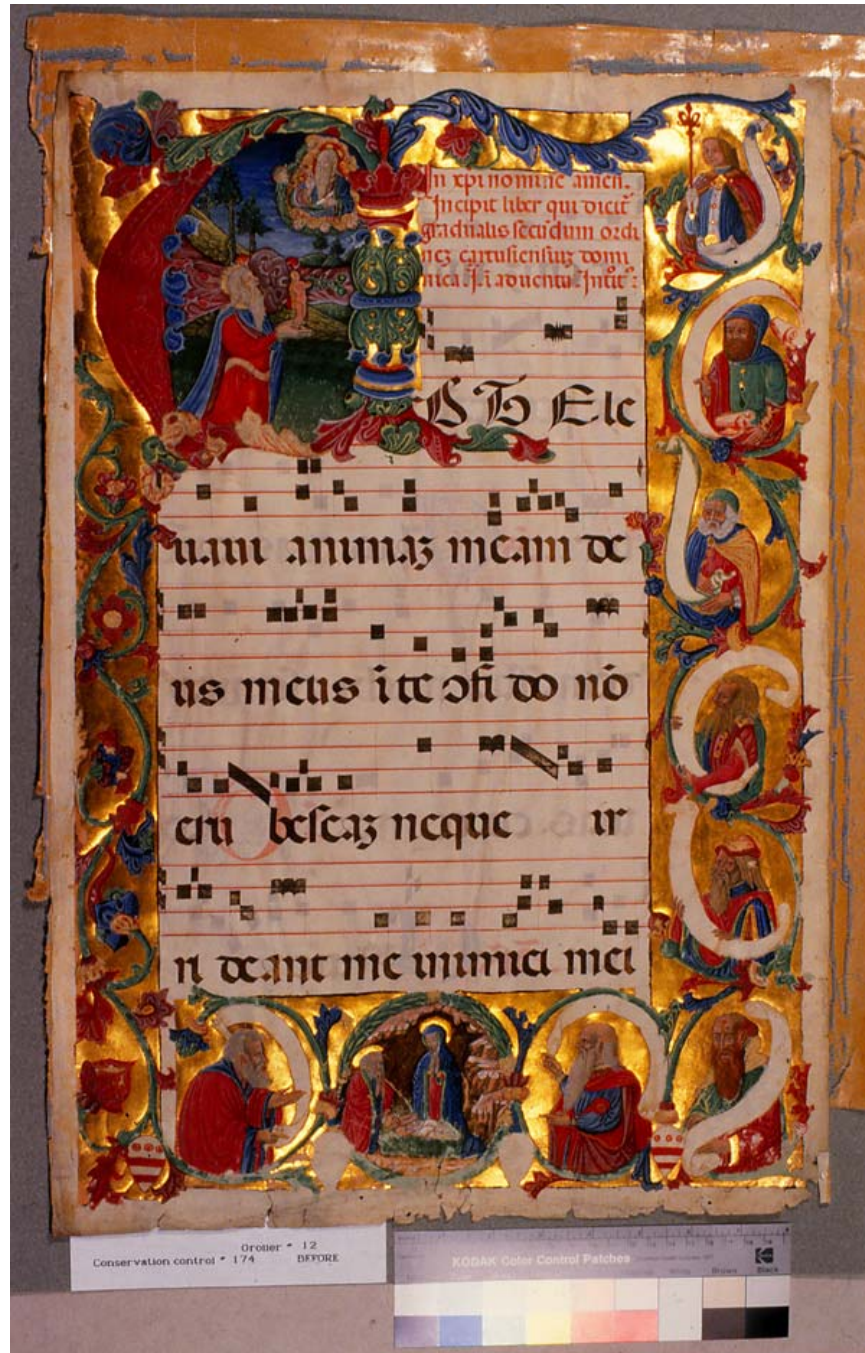 In xpi nomine amen.
Incipit liber qui dicit᷎
gradualis secūdum ordi
neʒ cartusiensiuʒ domi
nica .I. ī aduentu. Introit᷎:
AD TE Ele
uaui animaʒ meam de
us meus ī te ɔfi do nō
eru bescaʒ neque ir
ri deant me inimici mei
Grolier * 12
Conservation control * 174 BEFORE
KODAK Color Control Patches
Kodak
Brown Black